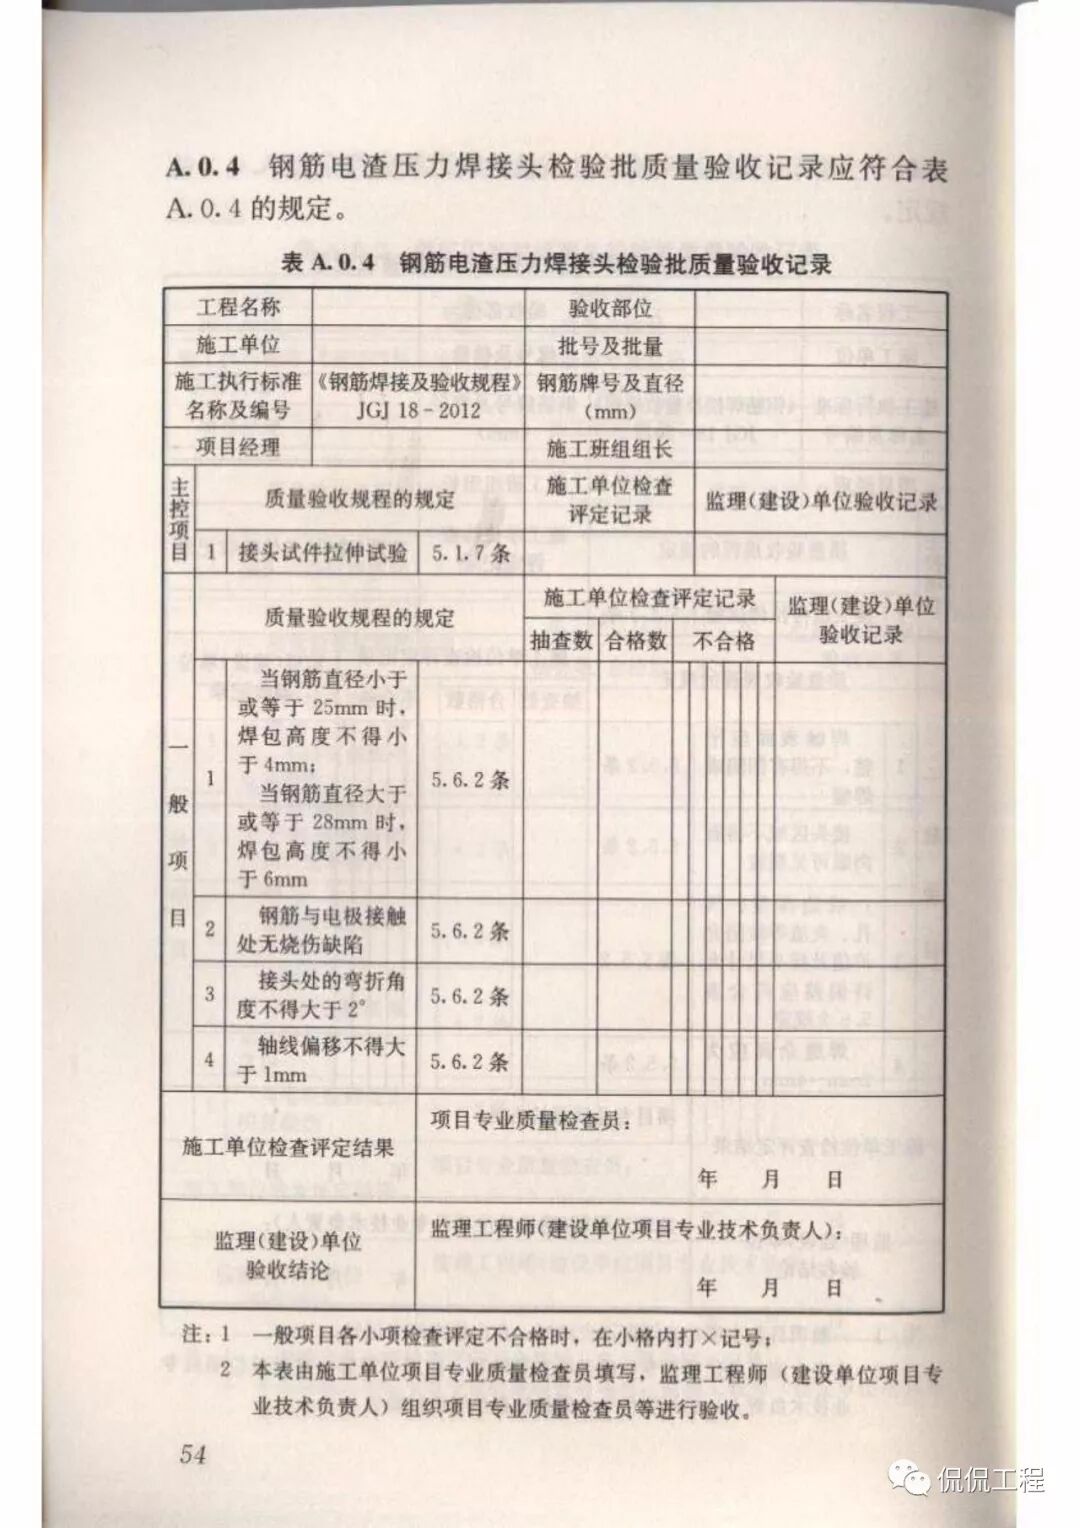 A.0.4 钢筋电渣压力焊接头检验批质量验收记录应符合表
A.0.4的规定。
表 A.0.4 钢筋电渣压力焊接头检验批质量验收记录
工程名称 验收部位
施工单位 批号及批量
施工执行标准
名称及编号
《钢筋焊接及验收规程》
JGJ 18-2012
钢筋牌号及直径
(mm)
项目经理 施工班组组长
主控项目
质量验收规程的规定
施工单位检查
评定记录
监理(建设)单位验收记录
1 接头试件拉伸试验 5.1.7条
一般项目
质量验收规程的规定
施工单位检查评定记录
抽查数 合格数 不合格
监理(建设)单位
验收记录
1
当钢筋直径小于
或等于25mm时,
焊包高度不得小
于4mm;
当钢筋直径大于
或等于28mm时,
焊包高度不得小
于6mm
5.6.2条
2
钢筋与电极接触
处无烧伤缺陷
5.6.2条
3
接头处的弯折角
度不得大于2°
5.6.2条
4
轴线偏移不得大
于1mm
5.6.2条
施工单位检查评定结果
项目专业质量检查员:
年 月 日
监理(建设)单位
验收结论
监理工程师(建设单位项目专业技术负责人):
年 月 日
注:1 一般项目各小项检查评定不合格时,在小格内打×记号;
2 本表由施工单位项目专业质量检查员填写,监理工程师(建设单位项目专
业技术负责人)组织项目专业质量检查员等进行验收。
54
侃侃工程